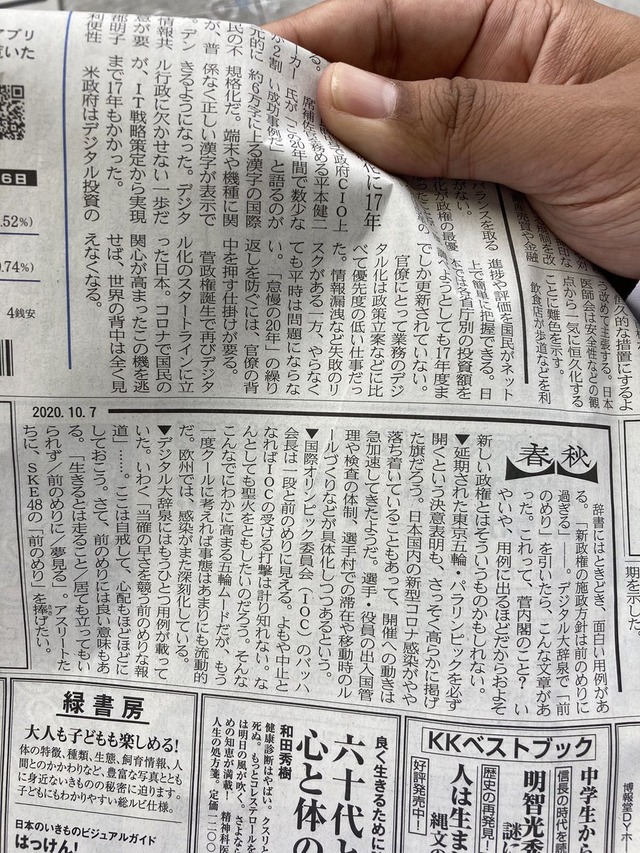 恒久的な措置にするよ
う改めて主張する。日本
医師会は安全性などの観
点から一気に恒久化する
ことに難色を示す。
飲食店が歩道などを利
バランスを取る
化に17年
政府CIO上
務める平本健二
氏が「この20年間で数少な
い成功事例だ」と語るのが
約6万字に上る漢字の国際
規格化だ。端末や機種に関
係なく正しい漢字が表示で
きるようになった。デジタ
ル行政に欠かせない一歩だ
が、IT戦略策定から実現
まで17年もかかった。
米政府はデジタル投資の
進捗や評価を国民がネット
上で簡単に把握できる。日
本では各省庁別の投資額を
調べようとしても17年度ま
でしか更新されていない。
官僚にとって業務のデジ
タル化は政策立案などに比
べて優先度の低い仕事だっ
た。情報漏洩など失敗のリ
スクがある一方、やらなく
ても平時は問題にならな
い。「怠慢の20年」の繰り
返しを防ぐには、官僚の背
中を押す仕掛けが要る。
菅政権誕生で再びデジタ
ル化のスタートラインに立
った日本。コロナで国民の
関心が高まったこの機を逃
せば、世界の背中は全く見
えなくなる。
4銭安
2020.10.7
春秋
辞書にはときどき、面白い用例があ
る。「新政権の施政方針は前のめりに
過ぎる」――。デジタル大辞泉で「前
のめり」を引いたら、こんな文章があ
った。これって、菅内閣のこと？ い
やいや、用例に出るほどだからおよそ
新しい政権とはそういうものかもしれない。
▼延期された東京五輪・パラリンピックを必ず
開くという決意表明も、さっそく高らかに掲げ
た旗だろう。日本国内の新型コロナ感染がやや
落ち着いていることもあって、開催への動きは
急加速してきたようだ。選手・役員の出入国管
理や検査の体制、選手村での滞在や移動時のル
ールづくりなどが具体化しつつあるという。
▼国際オリンピック委員会（IOC）のバッハ
会長は一段と前のめりに見える。よもや中止と
なればIOCの受ける打撃は計り知れない。な
んとしても聖火をともしたいのだろう。そんな
こんなでにわかに高まる五輪ムードだが、もう
一度クールに考えれば事態はあまりにも流動的
だ。欧州では、感染がまた深刻化している。
▼デジタル大辞泉にはもうひとつ用例が載って
いた。いわく「当確の早さを競う前のめりな報
道」……。ここは自戒して、心配もほどほどに
しておこう。さて、前のめりには良い意味もあ
る。「生きるとは走ること／居ても立ってもい
られず／前のめりに／夢見る」。アスリートた
ちに、SKE48の「前のめり」を捧げたい。
期を示した。
中学生から
信長の時代を読
明智光秀
謎に
歴史の再発見！
人は生ま
縄文の
KKベストブック
好評発売中！
良く生きるために
六十代と
心と体の
和田秀樹
緑書房
大人も子どもも楽しめる！
体の特徴、種類、生態、飼育情報、人
間とのかかわりなど、豊富な写真ととも
に身近ないきもの秘密に迫ります。
子どもにもわかりやすい総ルビ仕様。
日本のいきものビジュアルガイド
はっけん！
博報堂DYホ